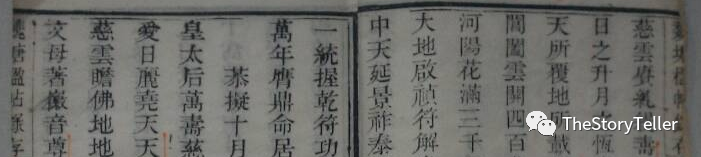 慈雲
日之升月
天所覆地
閶闔雲開四百
河陽花滿三千
大地啟禎符解
中天延景祚奉
一統握乾符功
萬年膺鼎命居
恭擬十月
皇太后萬壽慈
愛日麗堯天天
慈雲瞻佛地地
文母著徽音尊
TheStoryTeller